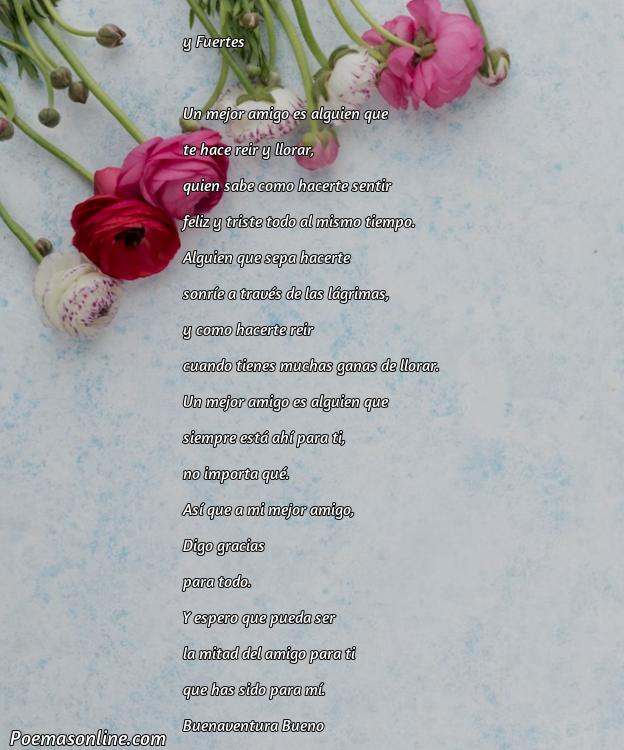 y Fuertes
Un mejor amigo es alguien que
te hace reir y llorar,
quien sabe como hacerte sentir
feliz y triste todo al mismo tiempo.
Alguien que sepa hacerte
sonríe a través de las lágrimas,
y como hacerte reir
cuando tienes muchas ganas de llorar.
Un mejor amigo es alguien que
siempre está ahí para ti,
no importa qué.
Así que a mi mejor amigo,
Digo gracias
para todo.
Y espero que pueda ser
la mitad del amigo para ti
que has sido para mí.
Buenaventura Bueno
Poemasonline.com